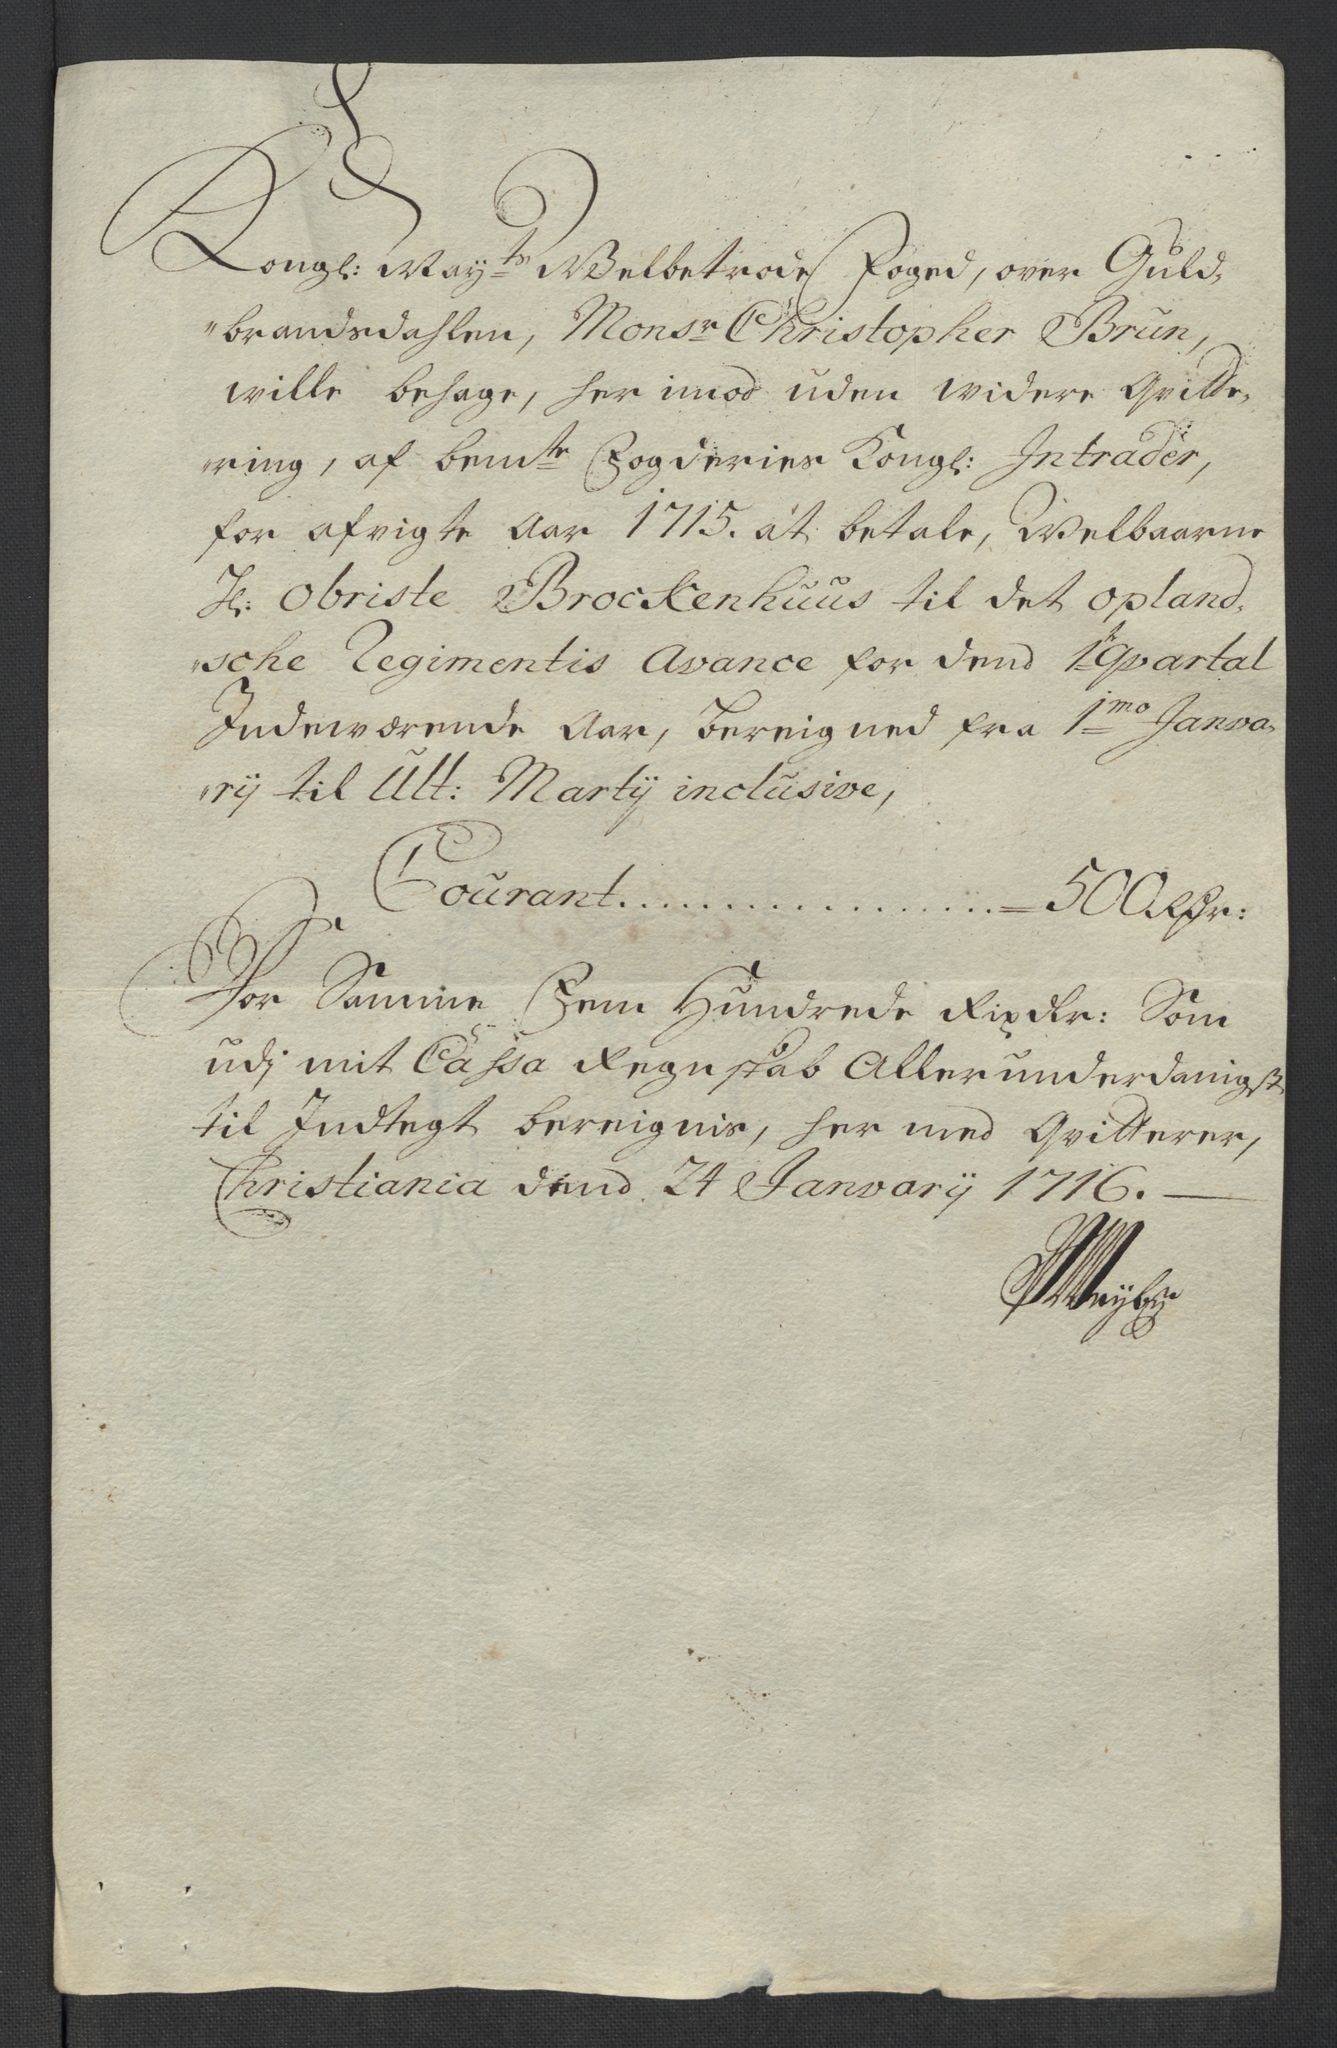 Kongl: Mayts Welbetrode Foged, over Guld-
brandsdahlen, Monsr Christopher Brun,
wille behage, her imod uden widere Qvitte-
ring, af bemte Fogderies Kongl: Intrader,
for afvigte Aar 1715. at betale, Welbaarne
H: Obriste Brockenhuus til det opland-
sche Regimentis Avance for dend 1te Qvartal
Indeværende Aar, bereigned fra 1mo Janva-
rij til Ult: Martij inclusive,
Courant................= 500 Rdr:
For Samme Fem Hundrede Rixdlr: Som
udj mit Cassa Regnskab Allerunderdanigst
til Indtegt bereignis, her med Qvitterer,
Christiania dend 24 Janvarij 1716. —